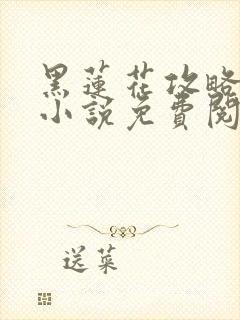 黑蓮花攻略
小說免費閱
送菜